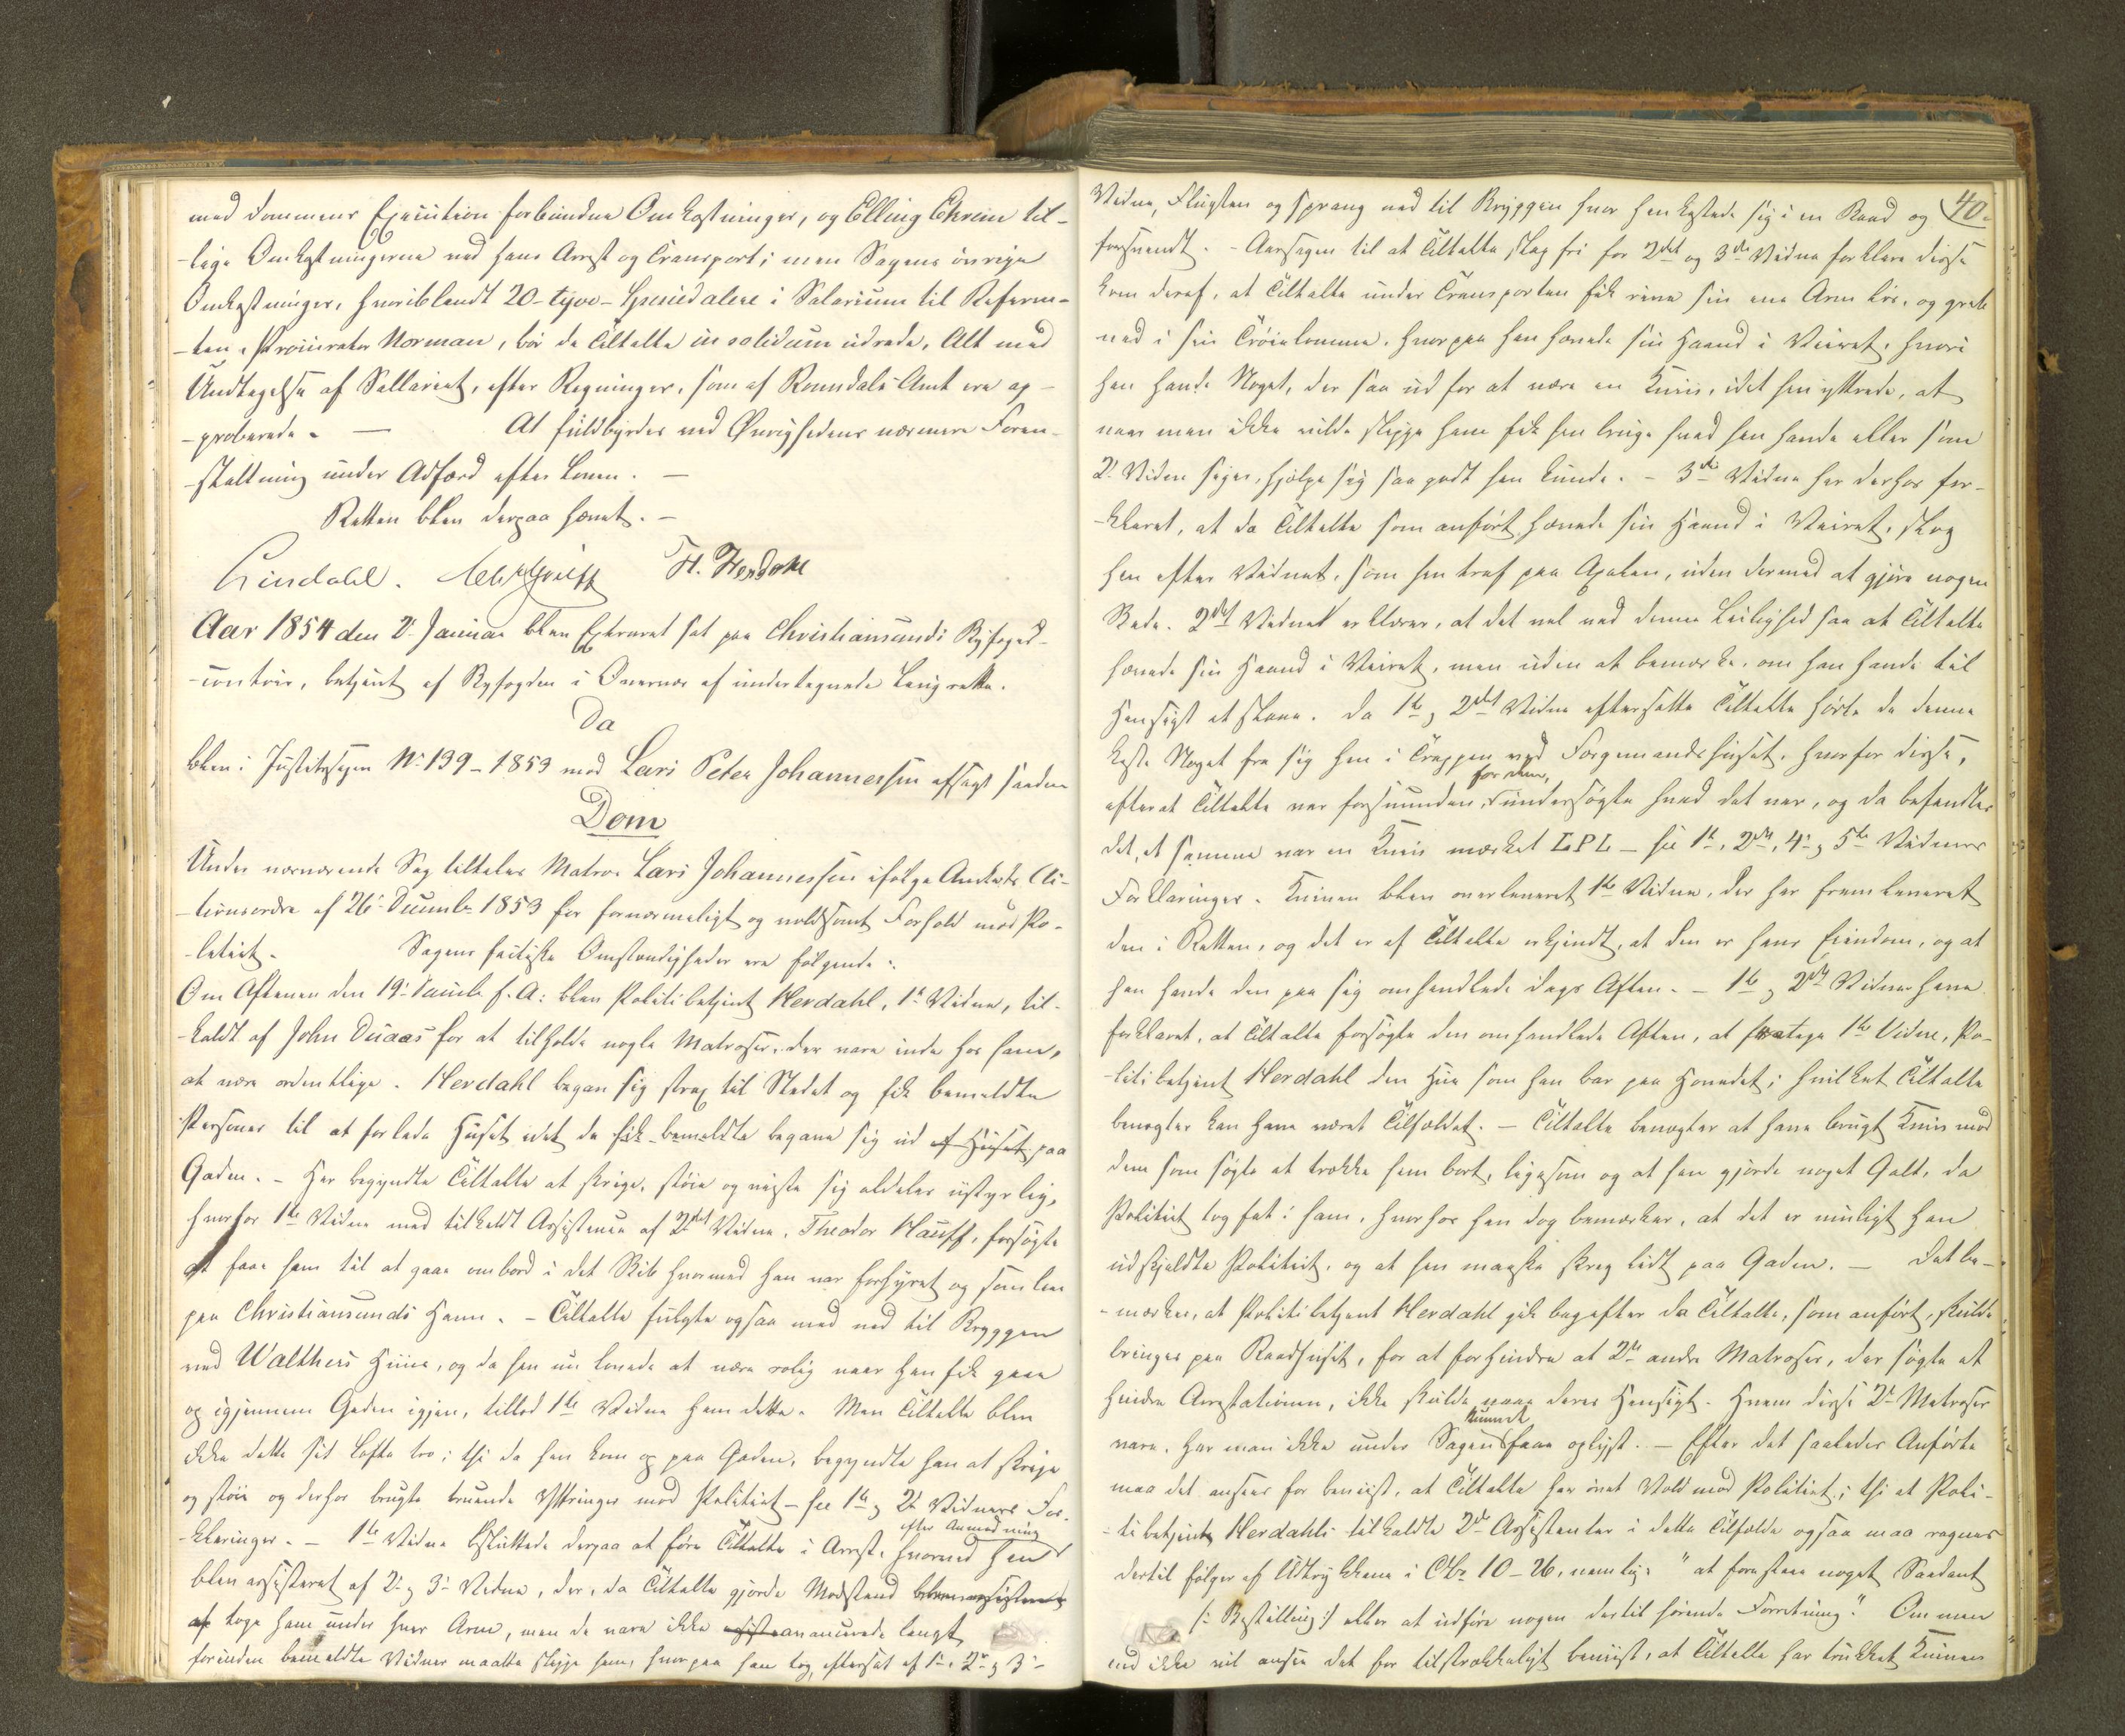 med Dommens Execution forbundne Omkostninger, og Elling Ehrein til-
-lige Omkostningerne ved hans Arrest og Transport; men Sagens øvrige
Omkostninger, hvoriblandt 20 - tyve - Speciedalere i Salarium til Referen-
-ten, Procurator Norman, bør de Tiltalte in solidum udrede, Alt med
Undtagelse af Sallariet, efter Regninger, som af Romsdals Amt ere ap-
-proberede. — At fuldbyrdes ved Øvrighedens nærmere Foran-
-staltning under Adfærd efter Loven. —
Retten blev derpaa hævet. —
Lindahl. H. Herdahl
Aar 1854 den 2. Januar blev Extraret sat paa Christiansunds Byfoged-
-contoir, betjent af Byfogden i Overvær af undertegnede Laugrette.
Da
blev i Justitssagen No 139 - 1853 mod Lars Peter Johannessen afsagt saadan
Dom
Under nærværende Sag tiltales Matros Lars Johannessen ifølge Amtets Ac-
-tionsordre af 26 Decembr 1853 for fornærmeligt og voldsomt Forhold mod Po-
-litiet. Sagens factiske Omstændigheder ere følgende:
Om Aftenen den 19. Decembr f. A. blev Politibetjent Herdahl, 1te Vidne, til-
-kaldt af John Dúaas for at tilholde nogle Matroser, der vare inde hos ham,
at være ordentlige. Herdahl begav sig strax til Stedet og fik bemeldte
Personer til at forlade Huset idet de fik bemeldte begave sig ud af Huset paa
Gaden. - Her begyndte Tiltalte at skrige, støie og viste sig aldeles ustyrlig,
hvorfor 1te Vidne med tilkaldt Assistence af 2det Vidne, Theodor Hauff, forsøgte
at faae ham til at gaae ombord i det Skib hvormed han var forhyret og som laae
paa Christiansunds Havn. - Tiltalte fulgte ogsaa med ned til Bryggen
ved Walthers Huus, og da han nu lovede at være rolig naar han fik gaae
op igjennem Gaden igjen, tillod 1te Vidne ham dette. Men Tiltalte blev
ikke dette sit Løfte tro; thi da han kom op paa Gaden, begyndte han at skrige
og støie og derhos brugte truende Yttringer mod Politiet - see 1te & 2det Vidners For-
-klaringer. - 1te Vidne besluttede derpaa at føre Tiltalte i Arrest, hvorved han efter Anmodning
blev assisteret af 2. & 3. Vidne, der, da Tiltalte gjorde Modstand blev assisteret
af toge ham under hver Arm, men de vare ikke avancerede langt
forinden bemeldte Vidner maatte slippe ham, hvorpaa han tog, eftersat af 1te, 2det & 3die
40.
Vidne, Flugten og sprang ned til Bryggen hvor han kastede sig i en Baad og
forsvandt. - Aarsagen til at Tiltalte slap fri for 2det og 3die Vidne forklare disse
kom deraf, at Tiltalte under Transporten fik rive sin ene Arm løs, og greb
ned i sin Trøielomme, hvorpaa han hævede sin Haand i Veiret, hvori
han havde Noget, der saa ud for at være en Kniv, idet han yttrede, at
naar man ikke vilde slippe ham fik han bruge hvad han havde eller som
2. Vidne siger, hjælpe sig saa godt han kunde. - 3die Vidne har derhos for-
-klaret, at da Tiltalte som anført hævede sin Haand i Veiret, slog
han efter Vidnet, som han traf paa Axelen, uden dermed at gjøre nogen
Skade. 2det Vidne erklærer, at det vel ved denne Leilighed saa at Tiltalte
hævede sin Haand i Veiret, men uden at bemærke, om han havde til
Hensigt at slaae. Da 1te & 2det Vidne eftersatte Tiltalte hørte de denne
kaste Noget fra sig hen i Trappen ved Forgemandshuset, hvorfor disse,
efterat Tiltalte var forsvunden for dem, undersøgte hvad det var, og da befandtes
det, at samme var en Kniv mærket LPL - see 1te, 2det, 4de & 5te Vidners
Forklaringer. Kniven blev overleveret 1te Vidne, der har fremleveret
den i Retten, og det er af Tiltalte erkjendt, at den er hans Eiendom, og at
han havde den paa sig omhandlede Dags Aften. - 1te & 2det Vidner have
forklaret, at Tiltalte forsøgte den omhandlede Aften, at fratage 1te Vidne, Po-
-litibetjent Herdahl den Hue som han bar paa Hovedet; hvilket Tiltalte
benægter kan have været Tilfældet. - Tiltalte benægter at have brugt Kniv mod
dem som søgte at trække ham bort, ligesom og at han gjorde noget Galt, da
Politiet tog fat i ham, hvorhos han dog bemærker, at det er muligt han
udskjældte Politiet, og at han maaske skreg lidt paa Gaden. — Det be-
-mærkes, at Politibetjent Herdahl gik bagefter da Tiltalte, som anført, skulde
bringes paa Raadhuset, for at forhindre at 2de andre Matroser, der søgte at
hindre Arrestationen, ikke skulde naae deres Hensigt. Hvem disse 2de Matroser
vare, har man ikke under Sagen kunnet faae oplyst. — Efter det saaledes Anførte
maa det ansees for beviist, at Tiltalte har øvet Vold mod Politiet; thi at Poli-
-tibetjent Herdahls tilkaldte 2de Assistenter i dette Tilfælde ogsaa maa regnes
dertil følger af Udtrykkene i Cbr 10 - 26, nemlig: "at forestaae noget Saadant
/: Bestilling:/ eller at udføre nogen dertil hørende Forretning". Om man
end ikke vil ansee det for tilstrækkeligt beviist, at Tiltalte har trukket Kniven